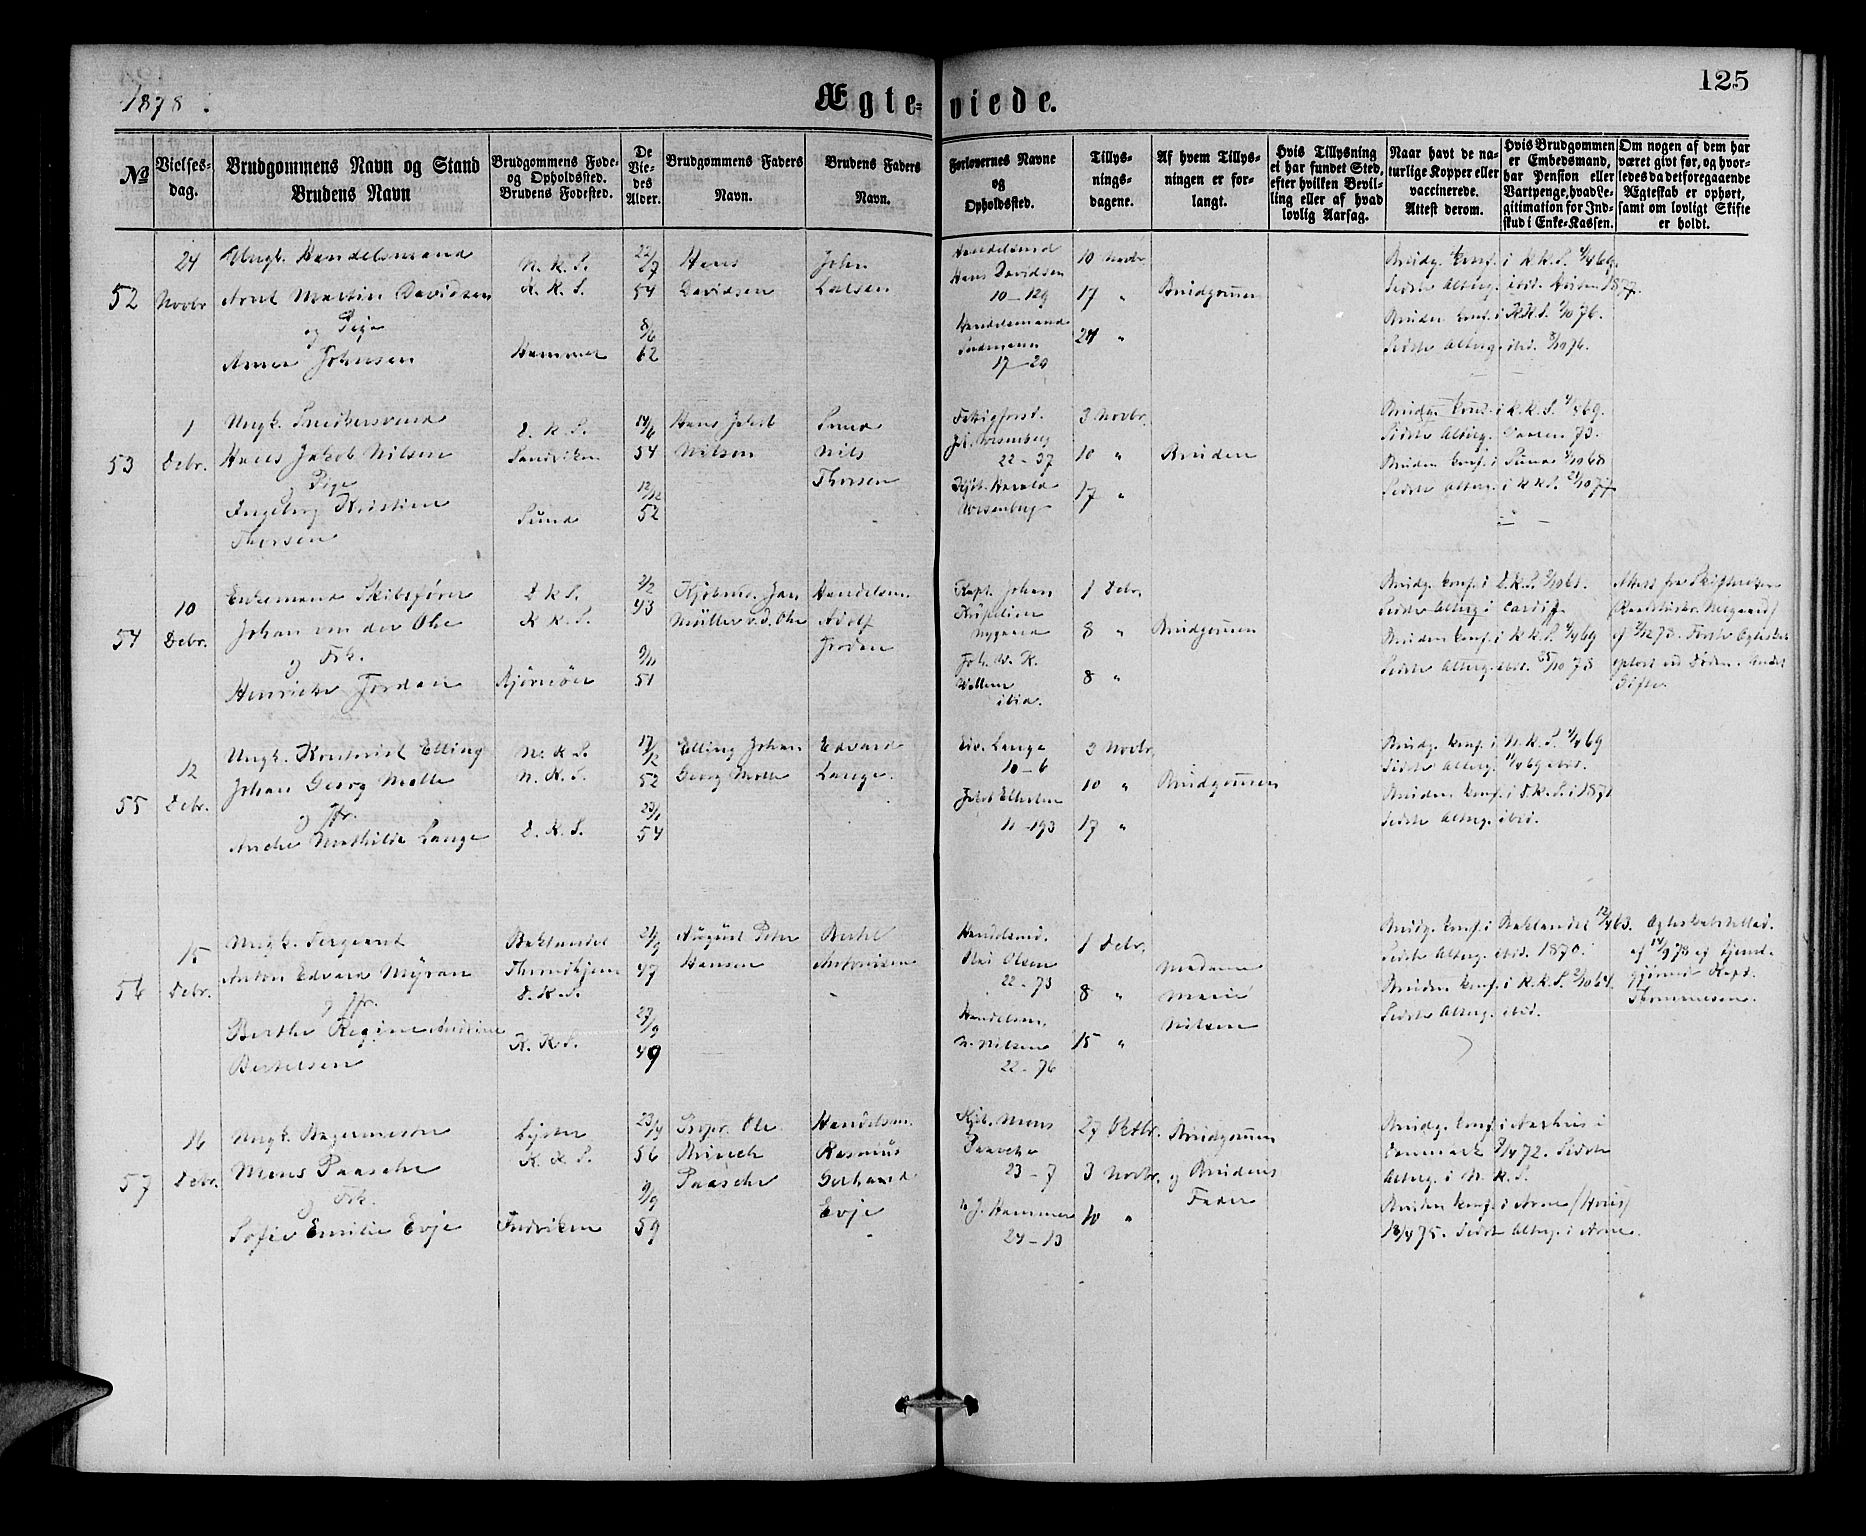 1878.
Ægteviede.
125
№
Vielsesdag.
Brudgommens Navn og Stand
Brudens Navn
Brudgommens Føde- og Opholdssted.
Brudens Fødested.
De Viedes Alder.
Brudgommens Faders Navn.
Brudens Faders Navn.
Forlovernes Navne og Opholdssted.
Tillysningsdagene.
Af hvem Tillysningen er forlangt.
Hvis Tillysning ei har fundet Sted, efter hvilken Bevilling eller af hvad lovlig Aarsag.
Naar havt de naturlige Kopper eller vaccinerede. Attest derom.
Hvis Brudgommen er Embedsmand, har Pension eller Vartpenge, hvad Legitimation for Indskud i Enke-Kassen.
Om nogen af dem har været givt før, og hvorledes da det foregaaende Ægteskab er ophørt, samt om lovligt Skifte er holdt.
52
24 Novbr
Ungk. Handelsmand
Arnt Martin Davidsen
og Pige
Anna Johnsen
N. K. S.
K. K. S.
Hammer
22/7 54
8/6 62
Hans
Davidsen
John
Handelsmd
Hans Davidsen
10-129
Handelsmand
17-20
10 Novbr.
17 "
24 "
Brudgommen
Brudg. konf. i K.K.S. 4/4 69.
Sidste Altérg. ibid. Høsten 1877.
Bruden konf. i K.K.S. 1/10 76.
Sidste Alterg. ibid. 8/10 76.
53
1 Debr.
Ungk. Snedkersvend
Hans Jakob Nilsen
og Pige
Ingeborg Kristine
Thorsen
D. K. S.
Sandviken
Sund
14/6 54
12/12 52
Hans Jakob
Nilsen
Sund
Nils
Thorsen
Fattigforst.
J. Wesenberg
22-37
Kjøb. Harald
Wesenberg
3 Novbr.
10 "
17 "
Bruden
Brudg. konf. i K.K.S. 4/4 69.
Sidste Alterg. Vaaren 73.
Bruden konf. i Sund 4/10 68
Sidste Alterg. i K.K.S. 21/10 77
54
10 Debr.
Enkemand Skibsfører
Johan von der Ohe
og Frk.
Henrikke Jordan
D. K. S.
K. K. S.
Bjørnøer
2/2 43
9/11 51
Kjøbmd. Jan
Müller v. d. Ohe
Handelsm.
Adolf
Jordan
Kapt. Johan
Krüpelien
Nygaard
Joh. W. K.
Willum
ibid.
1 Debr.
8 "
8 "
Brudgommen
Brudg. konf. i D.K.S. 2/10 61.
Sidste Alterg. i Cardiff.
Bruden konf. i K.K.S. 4/4 69
Sidste Alterg. ibid. 25/10 78
Attest fra Skifteretten
af 2/12 78. Første Ægteskab
opløst ved Døden. Andet
Gifte.
55
12 Debr.
Ungk. Kontorist Elling
Johan Georg Molle
og Jfr.
Anche Mathilde Lange
N. K. S.
N. K. S.
D. K. S.
17/12 52
23/1 54
Elling Johan
Georg Molle
Edvard
Lange.
Eiv. Lange
10-6
Jakob Ellerhusen
11-193
3 Novbr.
10 "
17 "
Brudgommen
Brudg. konf. i N.K.S. 4/4 69
Sidste Alterg. 11/4 69 ibid.
Bruden konf. i D.K.S. i 1871
Sidste Alterg. ibid.
56
15 Debr.
Ungk. Sergeant
Anton Edvard Myran
og Jfr.
Berthe Regine Andrine
Bertelsen
Baklandet
Throndhjem
D. K. S.
K. K. S.
21/9 47
27/9 49
August Peter
Hansen
Bertel
Antonisen
Handelsmd.
Olai Olsen
22-73
Handelsm.
N. Nilsen
22-76
1 Debr.
8 "
15 "
Madame
Marie
Nilsen
Brudg. konf. i Baklandet 12/4 63.
Sidste Alterg. ibid. 1870.
Bruden konf. i K.K.S. 2/10 64.
Sidste Alterg. ibid.
Ægteskabstillad.
af 14/9 78 af Kjend-
gjørnir Kapt.
Thommesen.
57
16 Debr.
Ungk. Bagermester
Mons Paasche
og Frk.
Sofie Emilie Evje
Lyster
K. K. S.
Indviken
23/4 56
9/9 59
Ole
Brinch
Paasche
Handelsm.
Rasmus
Gerhard
Evje
Kjb. Mons
Paasche
23-7
" J. Hammer
24-13
27 Oktbr.
3 Novbr.
10 "
Brudgommen
og Brudens
Fader
Brudg. konf. i Aarhus i
Danmark 7/4 72. Sidste
Alterg. i N.K.S.
Bruden konf. i Arne (Haus)
18/4 75. Sidste Alterg. i Arne.